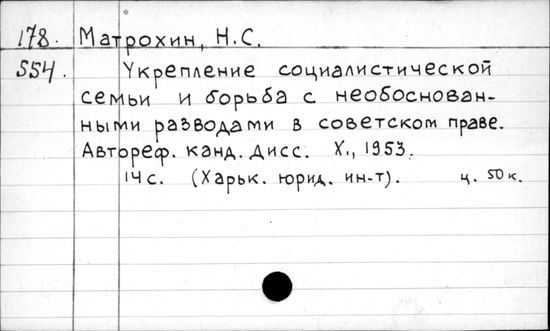 178. Матрохин, Н.С.
554. Укрепление социалистической
семьи и борьба с необоснован-
ными разводами в советском праве.
Автореф. канд. дисс. Х., 1953.
14 с. (Харьк. юрид. ин-т). ц. 50 к.